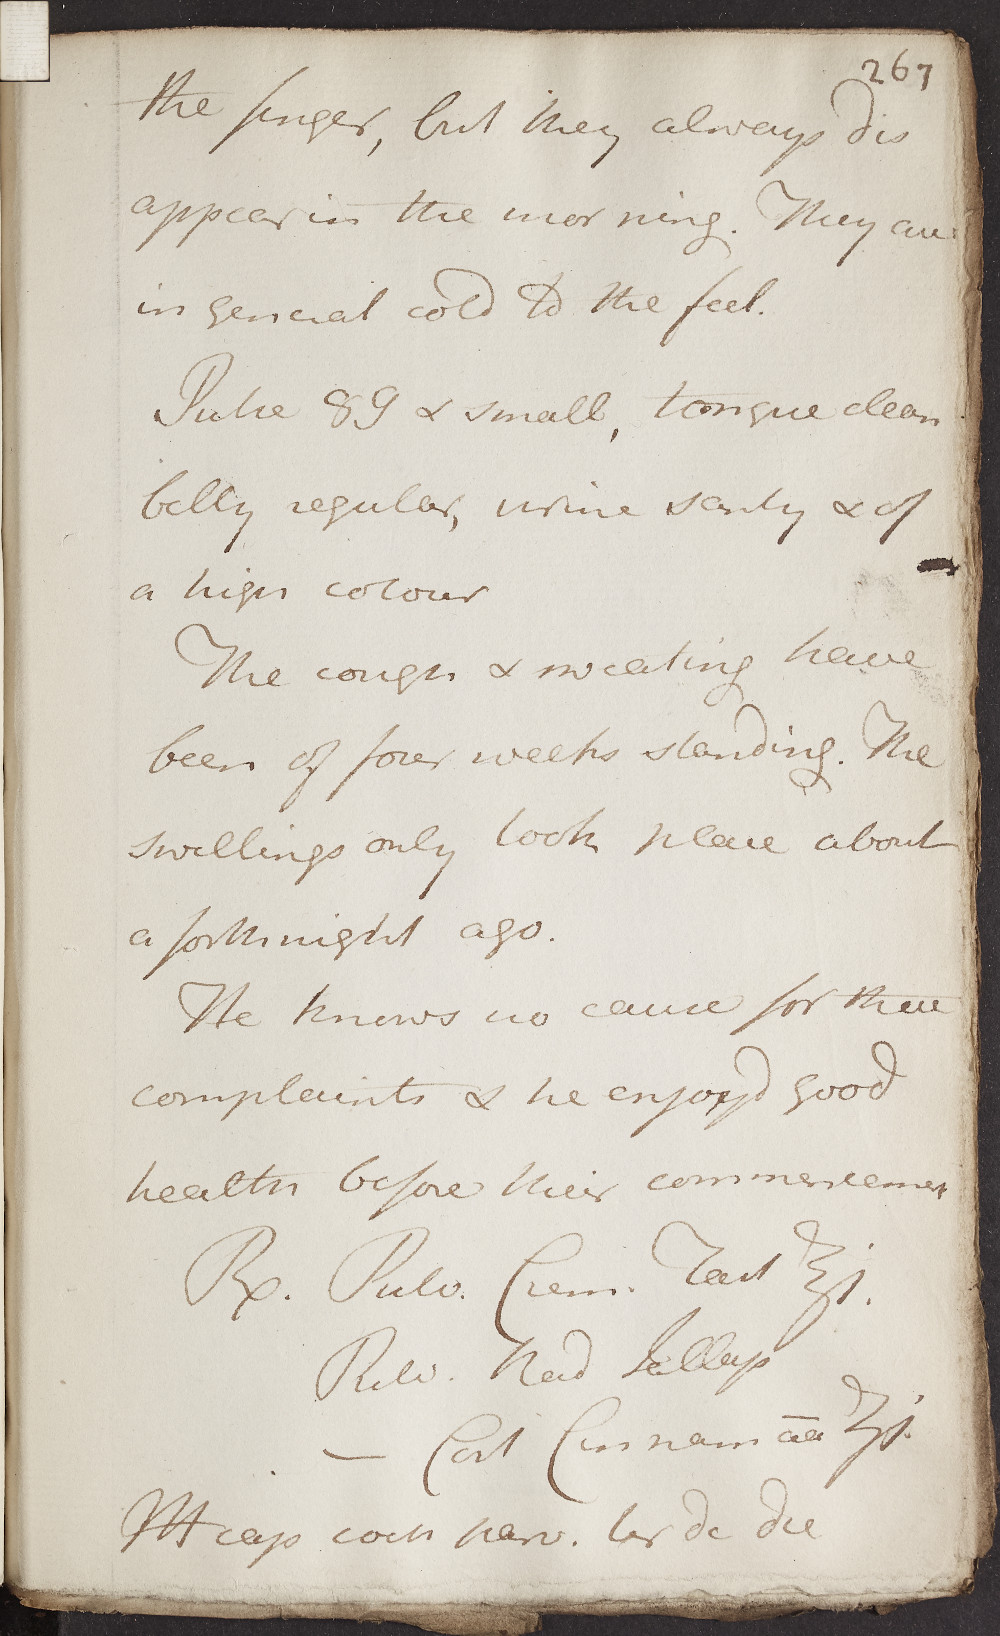 267
the finger, but they always dis
appear in the morning. They are
in general cold to the feel.
Pulse 89 & small, tongue clean
belly regular, urine scanty & of
a high colour
The cough & sweating have
been of four weeks standing. The
swellings only took place about
a forthnight ago.
He knows no cause for these
complaints & he enjoyd good
health before their commencement
Rx. Pulv. Crem. Tart ℥j.
Pulv. Rad Jallap
— Cort Cinnam āā ʒj.
M cap coch parv. ter de die